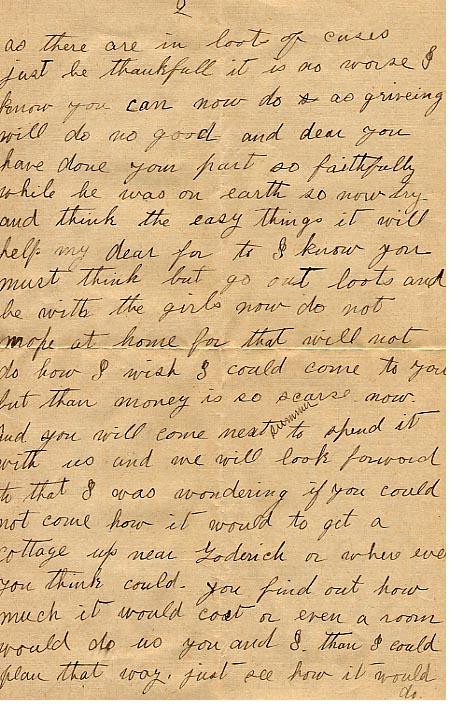 2
as there are in loots of cases
just be thankfull it is no worse I
know you can now do so as griveing
will do no good and dear you
have done your part so faithfully
while he was on earth so now try
and think the easy things it will
help my dear for to I know you
must think but go out loots and
be with the girls now do not
mope at home for that will not
do how I wish I could come to you
but than money is so scarse now
and you will come next summer to spend it
with us and we will look forword
to that I was wondering if you could
not come how it would to get a
cottage up near Goderich or where ever
you think could. you find out how
much it would cost or even a room
would do us you and I. than I could
plan that way. just see how it would
do.